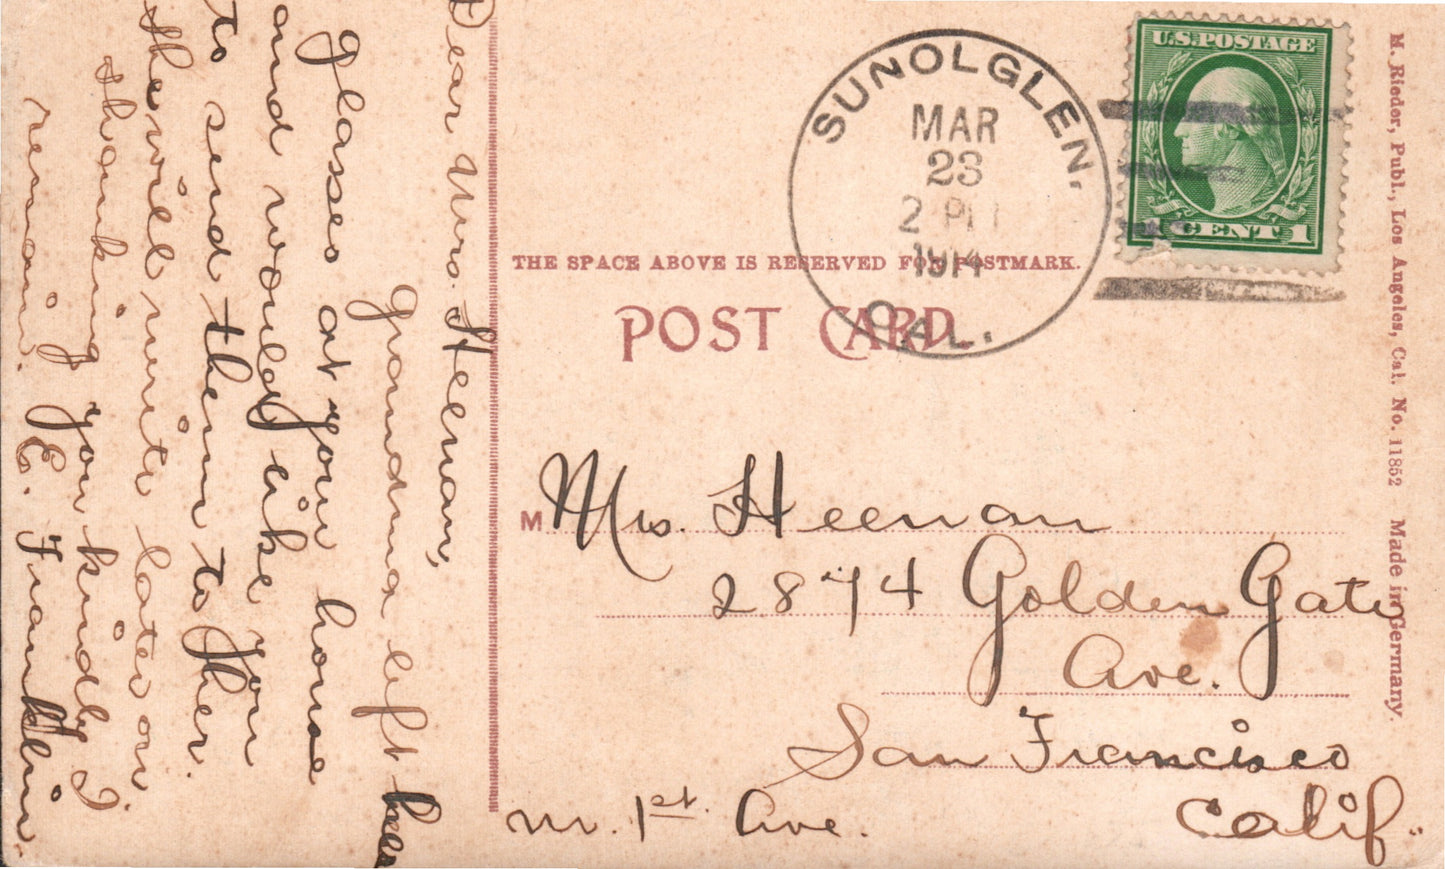 Dear Mrs. Heenan,
grandma left her
glasses at your house
and would like you
to send them to her.
She will write later on
thanking you kindly I
remain, E. Franklin.
SUNOLGLEN,
MAR
23
2 PM
1914
CAL.
U.S. POSTAGE
1 CENT 1
THE SPACE ABOVE IS RESERVED FOR POSTMARK.
POST CARD.
M
Mrs. Heenan
2874 Golden Gate
Ave.
San Francisco
Calif.
nr. 1st. Ave.
M. Rieder, Publ., Los Angeles, Cal. No. 11852 Made in Germany.